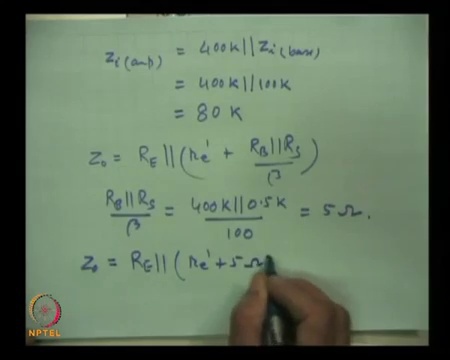 Zi(amp) = 400K||Zi(base)
= 400K||100K
= 80 K
Zo = RE||(re' + RB||RS/β)
RB||RS/β = 400K||0.5K/100 = 5Ω.
Zo = RE||(re' + 5Ω
NPTEL